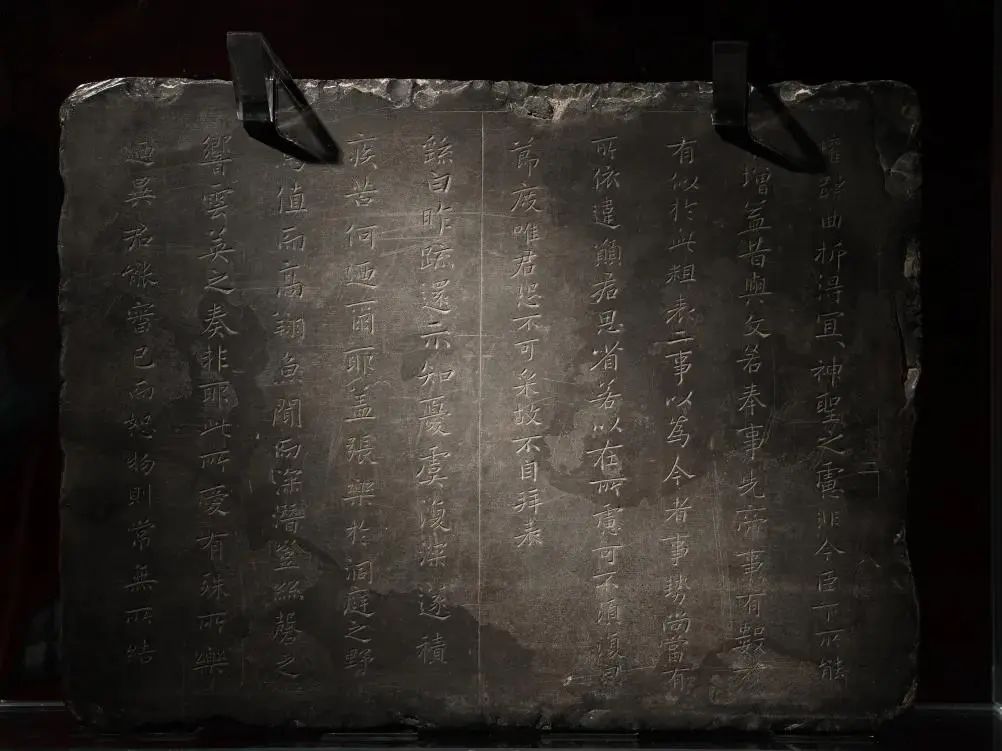 權疏曲折得冝神聖之慮非今臣下所能
增益昔與文若奉事先帝事有數者
有似於此粗表二事以為今者事勢尚當有
所依違願君思省若以在所慮可不須復皃
節度唯君恐不可采故不自拜表
繇白昨疏還示知憂虞復深遂積
疾苦何迺爾耶蓋張樂於洞庭之野
鳥值而高翔魚聞而深潛豈絲磬之
響雲英之奏非耶此所愛有殊所樂
迺異君能審己而恕物則常無所結